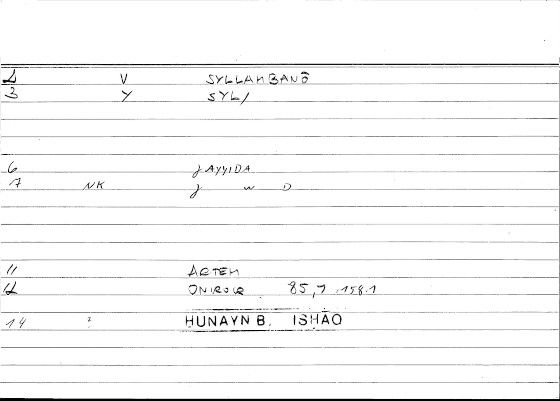 2 V SYLLAMBANŌ
3 Y SYL/
6 JAYYIDA
7 NK J W D
11 ARTEM
12 ONIROCR 85,7 158.1
14 ? HUNAYN B. ISHĀQ